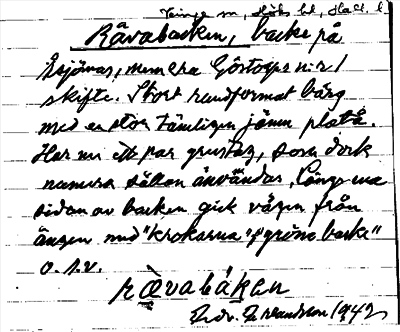 Vinge sn, Höks hd, Hall. l.
Råvabacken, backe på
Åsjömas, numera Göstorps nr 1
skifte. Stort rundformat bärg
med en stor tämligen jämn platå.
Har nu ett par grustag, som dock
numera sällan användas, Längs ena
sidan av backen gick vägen från
ängen med "krokarna", "gröne backe"
o. s. v.
rävabáken
Edv. Erlandsson 1942